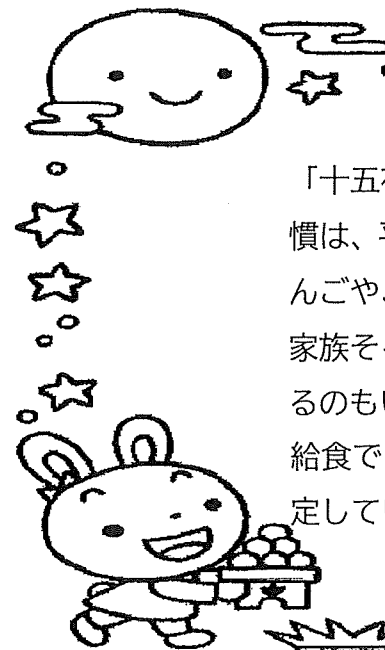 「十五
慣は、
んごや、
家族そ
るのも
給食で
定して